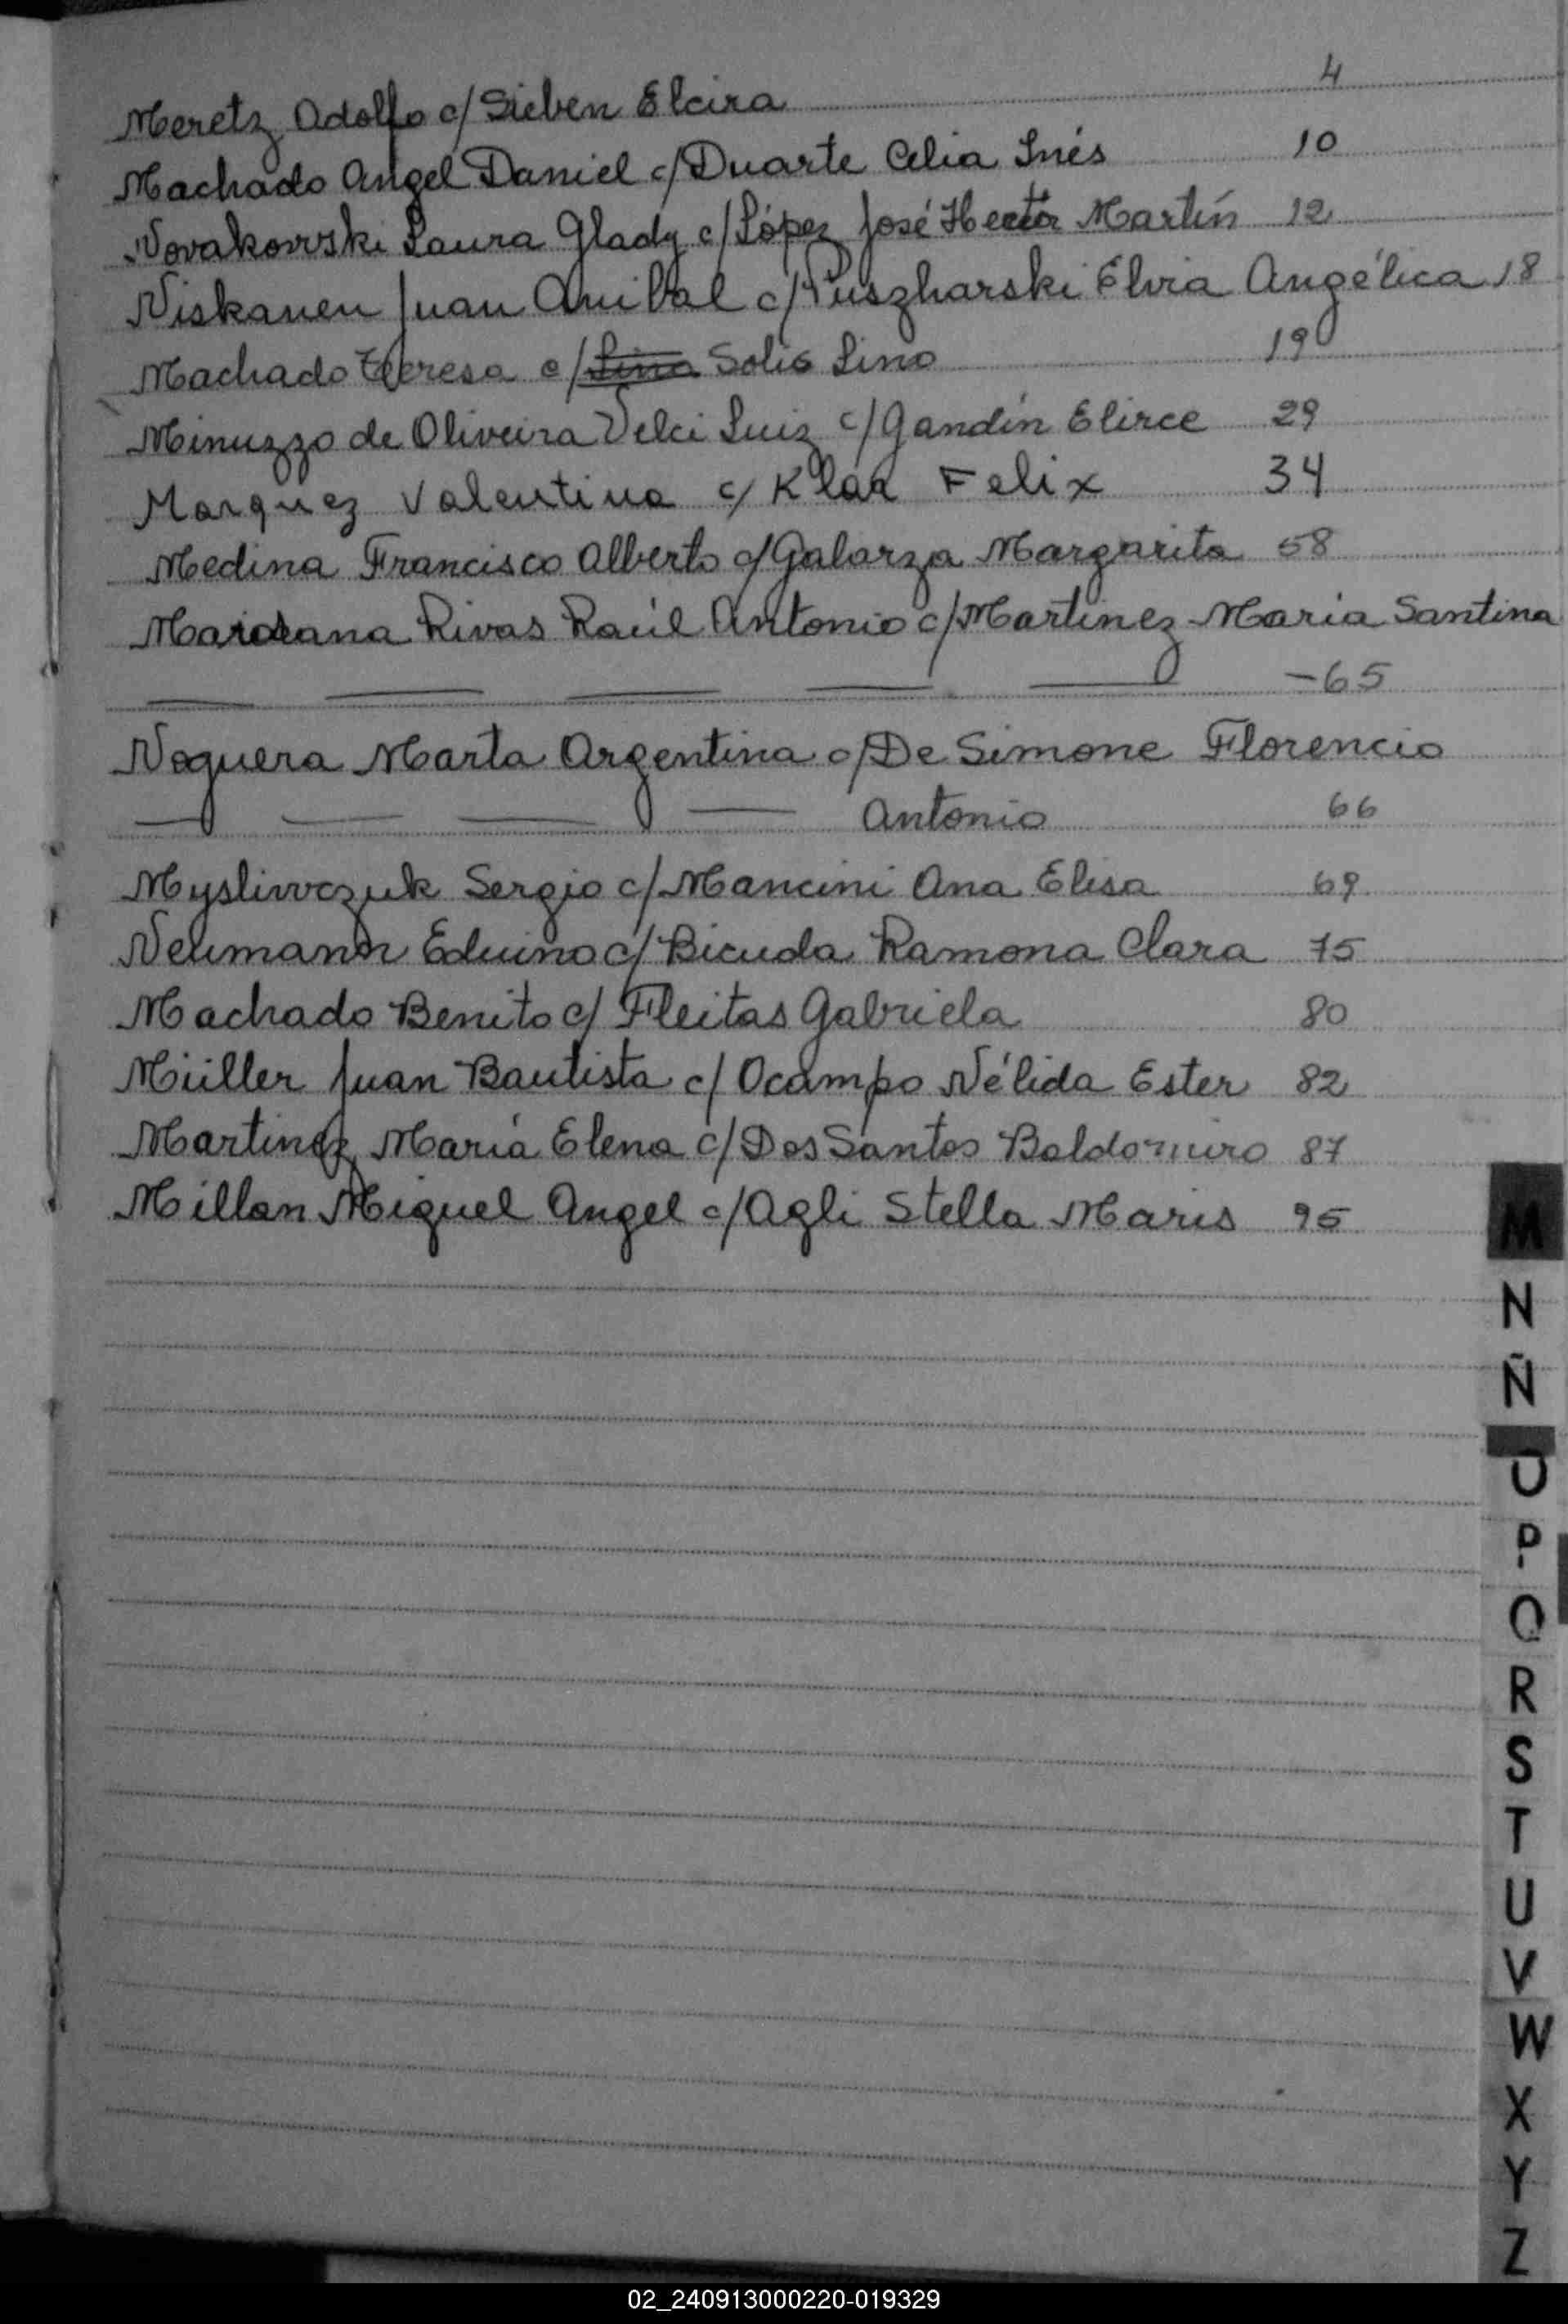 Meretz Adolfo c/ Sieben Elcira 4
Machado Angel Daniel c/ Duarte Celia Inés 10
Novakovski Laura Glady c/ López José Hector Martín 12
Niskanen Juan Anibal c/ Puszharski Elvia Angélica 18
Machado Teresa c/ Lino Solis Lino 19
Minuzzo de Oliveira Velci Luiz c/ Gandín Elirce 29
Marquez Valentina c/ Klar Felix 34
Medina Francisco Alberto c/ Galarza Margarita 58
Rivas Raúl Antonio c/ Martinez María Santina
-65
Noguera Marta Argentina c/ De Simone Florencio
Antonio 66
Mysliwczuk Sergio c/ Mancini Ana Elisa 69
Neumann Eduino c/ Bicuda Ramona Clara 75
Machado Benito c/ Fleitas Gabriela 80
Müller Juan Bautista c/ Ocampo Nélida Ester 82
Martinez María Elena c/ Dos Santos Baldomiro 87
Millan Miguel Angel c/ Agli Stella Maris 95
M
N
Ñ
O
P
Q
R
S
T
U
V
W
X
Y
Z
02_240913000220-019329